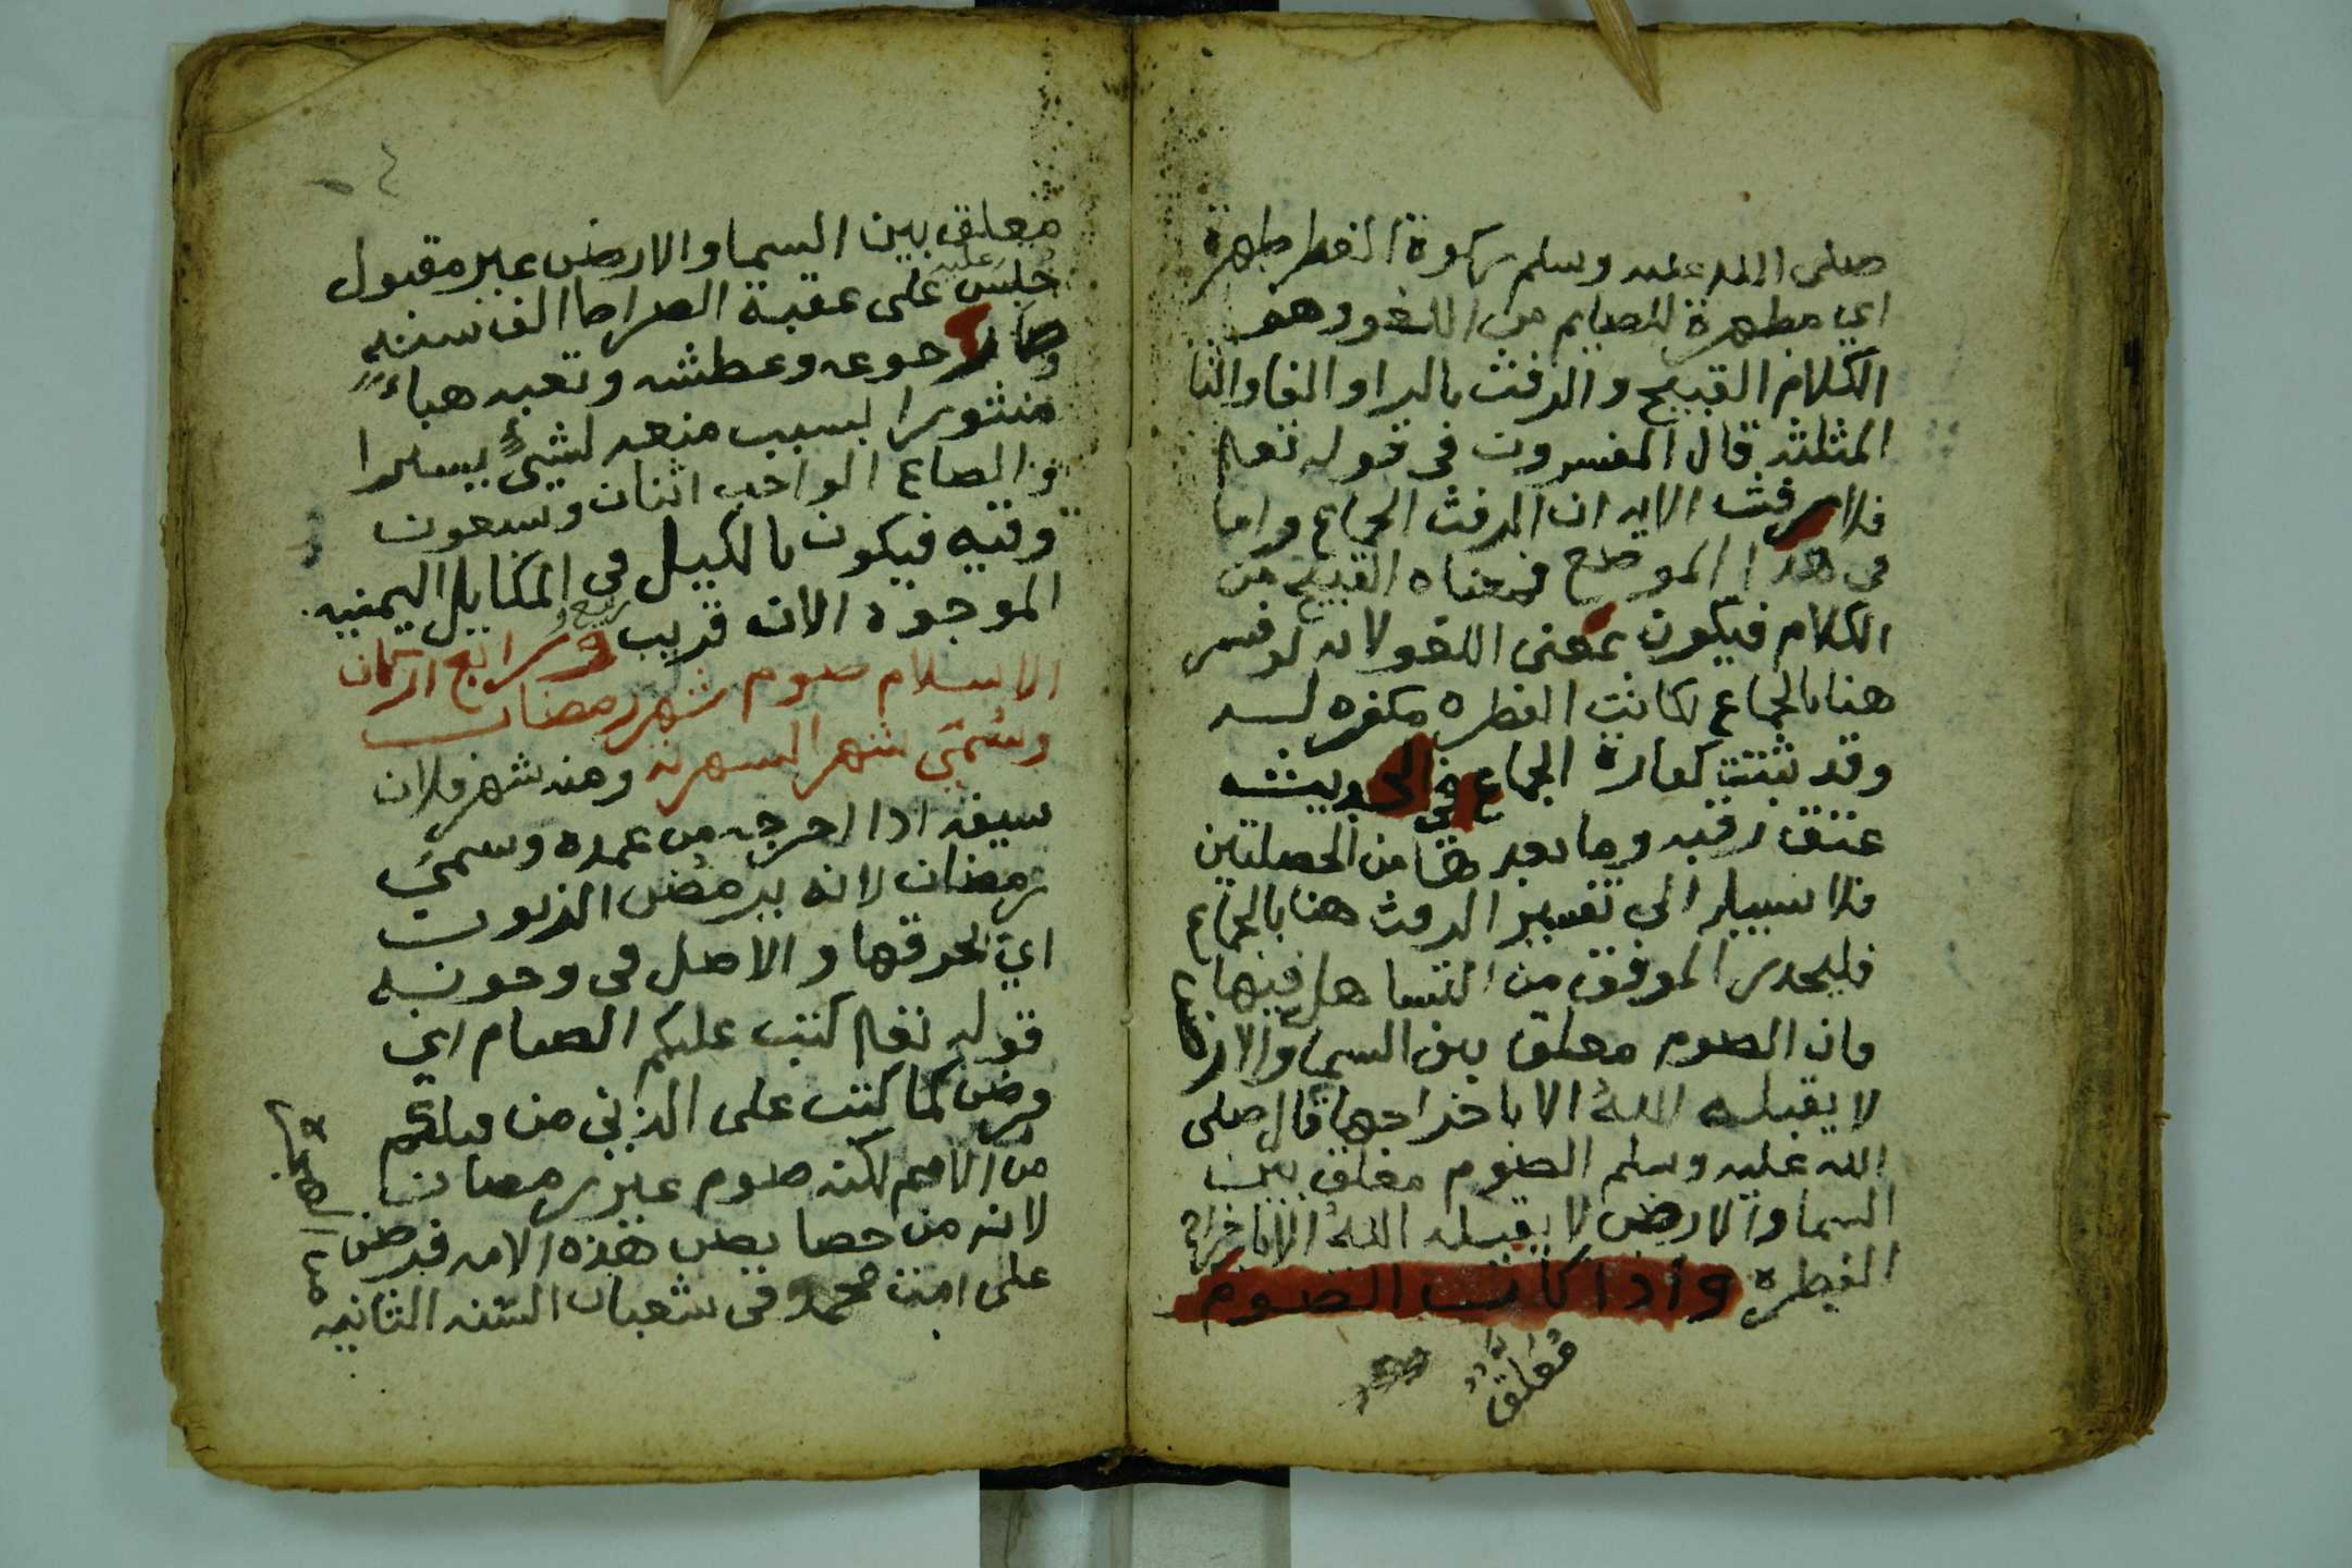 صلى الله عليه وسلم زكوة الفطر طهرة
اي مطهرة للصايم من اللغو وهو
الكلام القبيح والرفث بالراو الفاوالثا
المثلثه قال المفسرون في قوله تعا
فلا رفث الايه ان الرفث الجماع واما
في هذا الموضع فمعناه القبيح من
الكلام فيكون بمعنى اللغو لانه لو فسر
هنا بالجماع لكانت الفطره مكفره له
وقد ثبتت كفارة الجماع في الحديث
عتق رقبه وما بعدها من الخصلتين
فلا سبيل الى تفسير الرفث هنا بالجماع
فليحذر الموفق من التساهل فيها
فان الصوم معلق بين السما والارض
لا يقبله الله الا باخراجها قال صلى
الله عليه وسلم الصوم معلق بين
السما والارض لا يقبله الله الا باخراج
الفطره واذا كانت الصوم
معلق
معلق بين السما والارض غير مقبول
حبس عليه على عقبة الصراط الف سنه
وصار جوعه وعطشه وتعبه هباء
منثورا بسبب منعه لشيء يسير
والصاع الواجب اثنان وسبعون
وقيه فيكون بالكيل في المكاييل اليمنيه
الموجوده الان قريب ربع ورابع اركان
الاسلام صوم شهر رمضان
وسمي شهر الشهرته ومنه شهر فلان
سيفه اذا اخرجه من غمده وسمي
رمضان لانه يرمض الذنوب
اي يحرقها والاصل في وجوبه
قوله تعا كتب عليكم الصيام اي
فرض كما كتب على الذين من قبلكم
من الامم لكنه صوم غير رمضان
لانه من خصايص هذه الامه فرض
على امت محمد في شعبان السنه الثانيه
من الهجرة